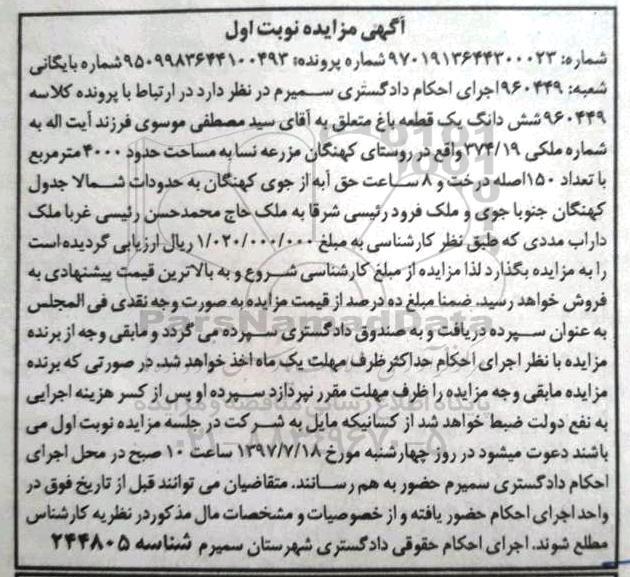 آگهی مزایده نوبت اول
شماره: ۹۷۰۱۹۱۳۶۴۴۳۰۰۰۲۳ شماره پرونده: ۹۵۰۹۹۸۳۶۴۴۱۰۰۴۹۳ شماره بایگانی
شعبه: ۹۶۰۴۴۹ اجرای احکام دادگستری سمیرم در نظر دارد در ارتباط با پرونده کلاسه
۹۶۰۴۴۹ شش دانگ یک قطعه باغ متعلق به آقای سید مصطفی موسوی فرزند آیت اله به
شماره ملکی ۳۷۴/۱۹ واقع در روستای کهنگان مزرعه نسا به مساحت حدود ۴۰۰۰ مترمربع
با تعداد ۱۵۰ اصله درخت و ۸ ساعت حق آبه از جوی کهنگان به حدودات شمالا جدول
کهنگان جنوبا جوی و ملک فرود رئیسی شرقا به ملک حاج محمدحسن رئیسی غربا ملک
داراب مددی که طبق نظر کارشناسی به مبلغ ۱/۰۲۰/۰۰۰/۰۰۰ ریال ارزیابی گردیده است
را به مزایده بگذارد لذا مزایده از مبلغ کارشناسی شروع و به بالاترین قیمت پیشنهادی به
فروش خواهد رسید. ضمنا مبلغ ده درصد از قیمت مزایده به صورت وجه نقدی فی المجلس
به عنوان سپرده دریافت و به صندوق دادگستری سپرده می گردد و مابقی وجه از برنده
مزایده با نظر اجرای احکام حداکثر ظرف مهلت یک ماه اخذ خواهد شد. در صورتی که برنده
مزایده مابقی وجه مزایده را ظرف مهلت مقرر نپردازد سپرده او پس از کسر هزینه اجرایی
به نفع دولت ضبط خواهد شد از کسانیکه مایل به شرکت در جلسه مزایده نوبت اول می
باشند دعوت میشود در روز چهارشنبه مورخ ۱۳۹۷/۷/۱۸ ساعت ۱۰ صبح در محل اجرای
احکام دادگستری سمیرم حضور به هم رسانند. متقاضیان می توانند قبل از تاریخ فوق در
واحد اجرای احکام حضور یافته و از خصوصیات و مشخصات مال مذکور در نظریه کارشناس
مطلع شوند. اجرای احکام حقوقی دادگستری شهرستان سمیرم شناسه ۲۴۴۸۰۵
ParsNamadData
پایگاه اطلاع رسانی مناقصه و مزایده
۰۲۱-۸۸۳۴۹۶۷۰-۵